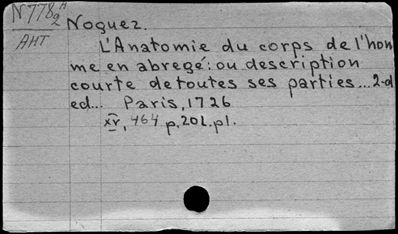 N778 A
2
AHT
Noguez.
L'Anatomie du corps de l'hom
me en abregé: ou description
courte de toutes ses parties... 2-d
ed... Paris, 1726
xv, 464 p. 20 l. pl.